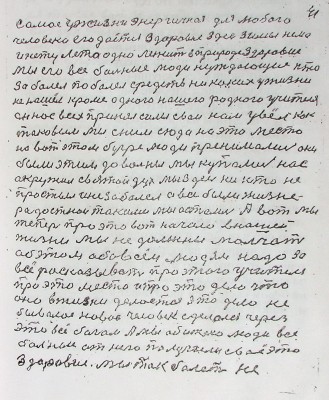 41
самое у жизни энергичная для любого
человека его дается здоровье здесь зимы нема
и нету лета одно лежит в природе здоровье
мы его все больные люди нуждающие кто
заболел поболел средств никаких у жизни
не нашев кроме одного нашего родного учителя
он нас всех принял силы свои нам увёл как
таковым мы с ним сюда на это место
на вот этом бугре люди принимали они
были этим довольны мы купали нас
окружил святой дух мы з ним никто не
простыл и не заболел а все были жизне-
радостное такими мы остались А вот мы
теперь про это вот начало в нашей
жизни мы не должны молчать
об этом обовсём людям надо за
всё рассказывать про этого учителя
про это место и про это дело что
оно в жизни делается это дело не
бывалое новое человек сделал через
это всё богом А мы обитожо люди все
больные от него получили свое это
здоровье. мы так болеть не